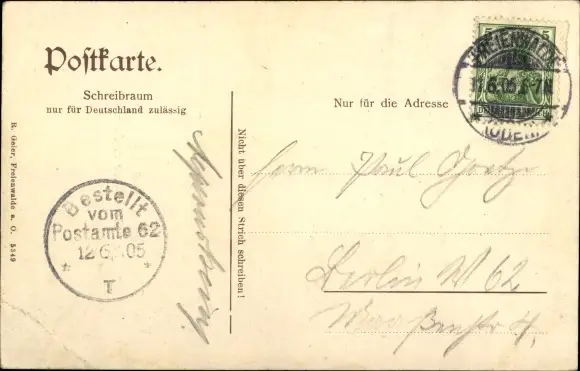 Postkarte.
Schreibraum
nur für Deutschland zulässig
Nur für die Adresse
5 5
FREIENWALDE
11.6.05.6-7N.
* (ODER) *
R. Geier, Freienwalde a. O. 5349
Nicht über diesen Strich schreiben!
Herrn Paul Goetze
Berlin W 62
Bestellt
vom
Postamte 62
12.6.05
* *
T